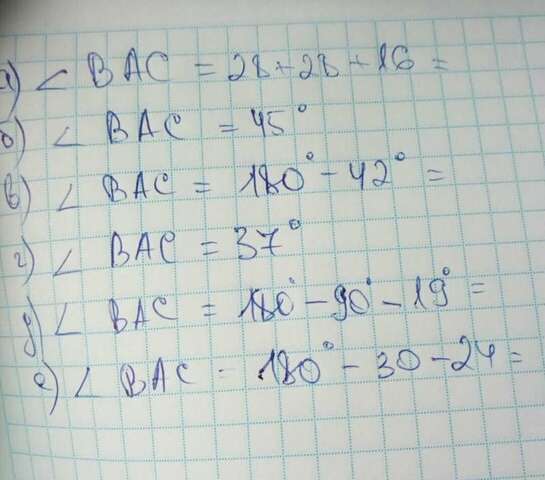 а) ∠ BAC = 28 + 28 + 16 =
б) ∠ BAC = 45°
в) ∠ BAC = 180° - 42° =
г) ∠ BAC = 37°
д) ∠ BAC = 180° - 90° - 19° =
е) ∠ BAC - 180° - 30 - 24 =